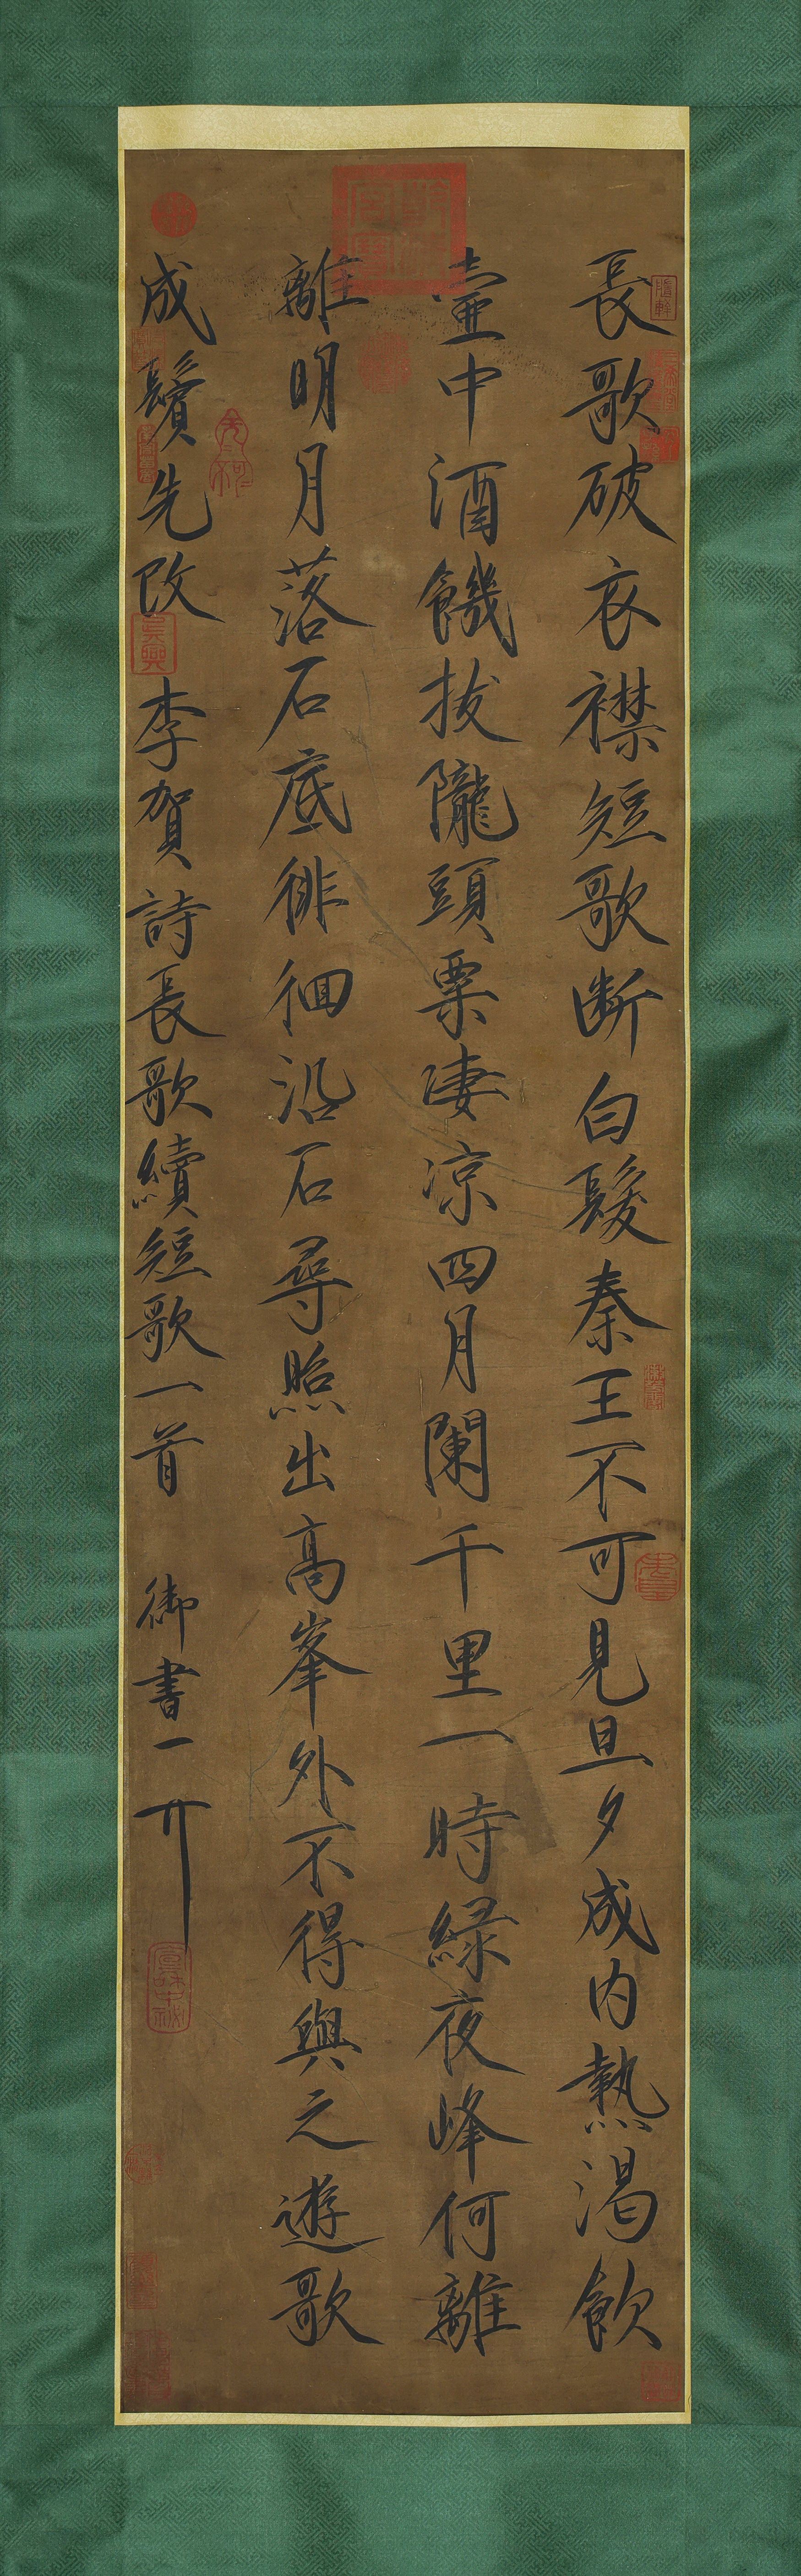 長歌破衣襟短歌断白髮秦王不可見旦夕成内熱渴飲
壺中酒饑拔隴頭粟凄凉四月闌千里一時緑夜峰何離
離明月落石底徘徊沿石尋照出高峯外不得與之遊歌
成鬢先改 李賀詩長歌續短歌一首 御書一